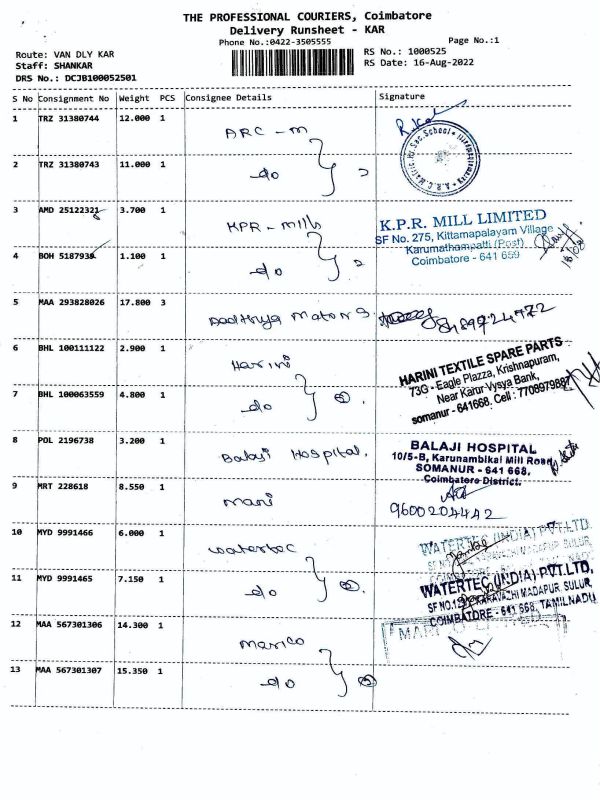 THE PROFESSIONAL COURIERS, Coimbatore
Delivery Runsheet - KAR
Phone No.:0422-3505555
Page No.:1
Route: VAN DLY KAR
Staff: SHANKAR
DRS No.: DCJB100052501
RS No.: 1000525
RS Date: 16-Aug-2022
S No Consignment No Weight PCS Consignee Details Signature
1 TRZ 31380744 12.000 1 ARC - M
2 TRZ 31380743 11.000 1 do 2
3 AMD 25122321 3.700 1 KPR - Mills
K.P.R. MILL LIMITED
SF No. 275, Kittamapalayam Village
Karumathampatti (Post)
Coimbatore - 641 659
4 BOH 5187939 1.100 1 do 2
5 MAA 293828026 17.800 3
6 BHL 100111122 2.900 1 Harini
HARINI TEXTILE SPARE PARTS
73G - Eagle Plazza, Krishnapuram,
Near Karur Vysya Bank,
somanur - 641668. Cell : 7708979887
7 BHL 100063559 4.800 1 do 2
8 POL 2196738 3.200 1 Balaji Hospital.
BALAJI HOSPITAL
10/5-B, Karunambikai Mill Road
SOMANUR - 641 668.
Coimbatore District.
9 MRT 228618 8.550 1 mani
9600204442
10 MYD 9991466 6.000 1 watertec
WATERTEC (INDIA) PVT.LTD.
11 MYD 9991465 7.150 1 do 2
WATERTEC (INDIA) PVT.LTD,
MADAPUR, SULUR,
COIMBATORE - 641 668, TAMILNADU
12 MAA 567301306 14.300 1 marico
13 MAA 567301307 15.350 1 do 2